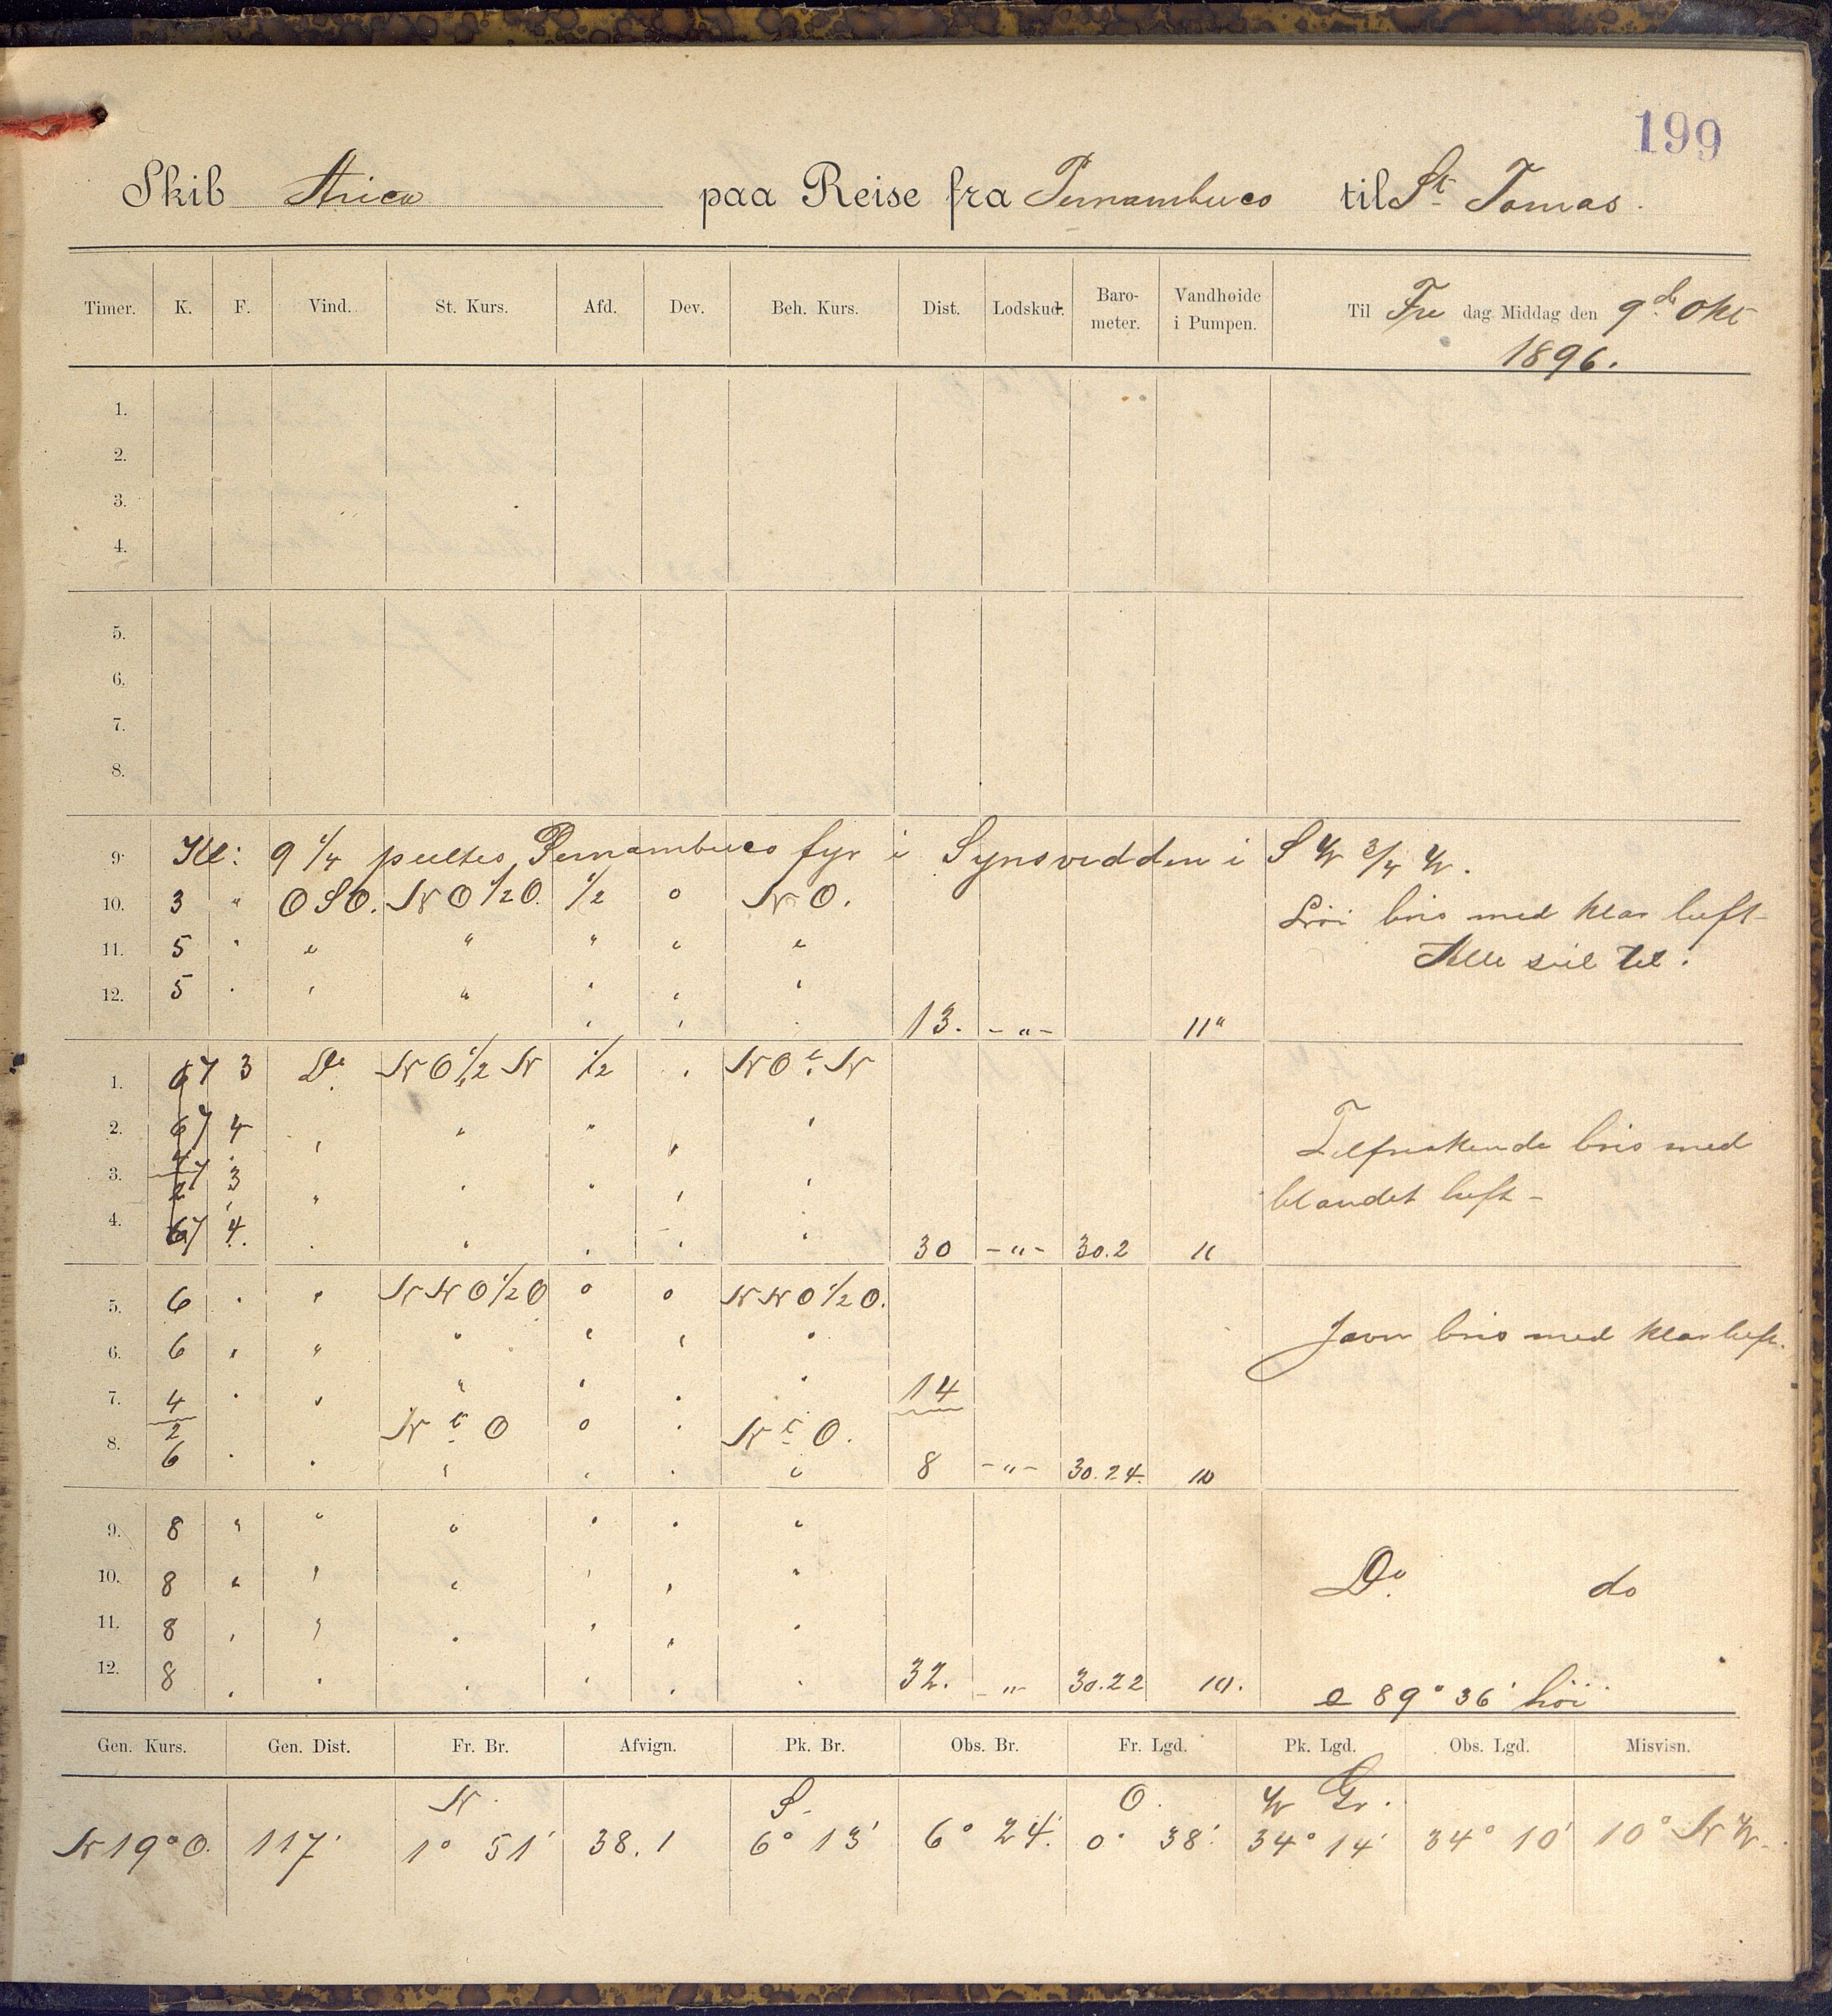 199
Skib Arica paa Reise fra Pernambuco til St Tomas.
Timer. K. F. Vind. St. Kurs. Afd. Dev. Beh. Kurs. Dist. Lodskud. Baro-meter. Vandhøide i Pumpen. Til Fre dag Middag den 9de Okt
1896.
1.
2.
3.
4.
5.
6.
7.
8.
9. Kl: 9 1/4 peiltes Pernambuco fyr i Synsvidden i S W 3/4 W.
10. 3 " OSO. NO 1/2 O. 1/2 o NO. Löi bris med klar luft
11. 5 " " " " " " Alle seil til.
12. 5 " " " " " "
" " " 13. -"- 11"
1. 7 3 Do. NO 1/2 N 1/2 " NO t N
2. 7 4 " " " " " Tilfriskende bris med
3. 7 3 " " " " " blandet luft -
4. 7 4. " " " " " 30 -"- 30.2 11
5. 6 " " NNO 1/2 O o o NNO 1/2 O.
6. 6 " " " " " " Javn bris med klar luft.
7. 4 " " " " " " 14
8. 2 N t O o " N t O.
6 " " " " " " 8 -"- 30.24. 10
9. 8 " " " " " "
10. 8 " " " " " " Do. do
11. 8 " " " " " "
12. 8 " " " " " " 32. -"- 30.22 10. 89° 36' höi
Gen. Kurs. Gen. Dist. Fr. Br. Afvign. Pk. Br. Obs. Br. Fr. Lgd. Pk. Lgd. Obs. Lgd. Misvisn.
N. S. O. W Gr.
N 19° O. 117' 1° 51' 38.1 6° 13' 6° 24' 0° 38' 34° 14' 34° 10' 10° N W.